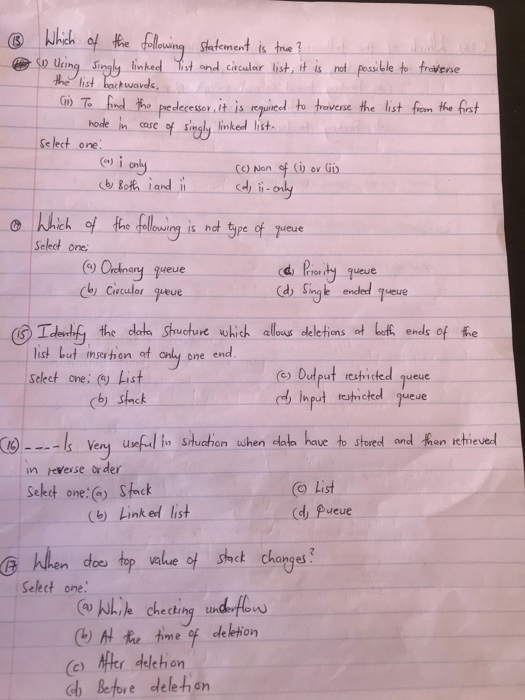 (13) Which of the following statement is true?
(i) Using singly linked list and circular list, it is not possible to traverse
the list backwards.
(ii) To find the predecessor, it is required to traverse the list from the first
node in case of singly linked list.
Select one:
(a) i only (c) Non of (i) or (ii)
(b) Both i and ii (d) ii-only
(14) Which of the following is not type of queue
Select one:
(a) Ordinary queue (c) Priority queue
(b) Circular queue (d) Single ended queue
(15) Identify the data structure which allows deletions at both ends of the
list but insertion at only one end.
Select one: (a) List (c) Output restricted queue
(b) stack (d) Input restricted queue
(16) ---- Is very useful in situation when data have to stored and then retrieved
in reverse order
Select one: (a) Stack (c) List
(b) Linked list (d) Queue
(17) When does top value of stack changes?
Select one:
(a) While checking underflow
(b) At the time of deletion
(c) After deletion
(d) Before deletion